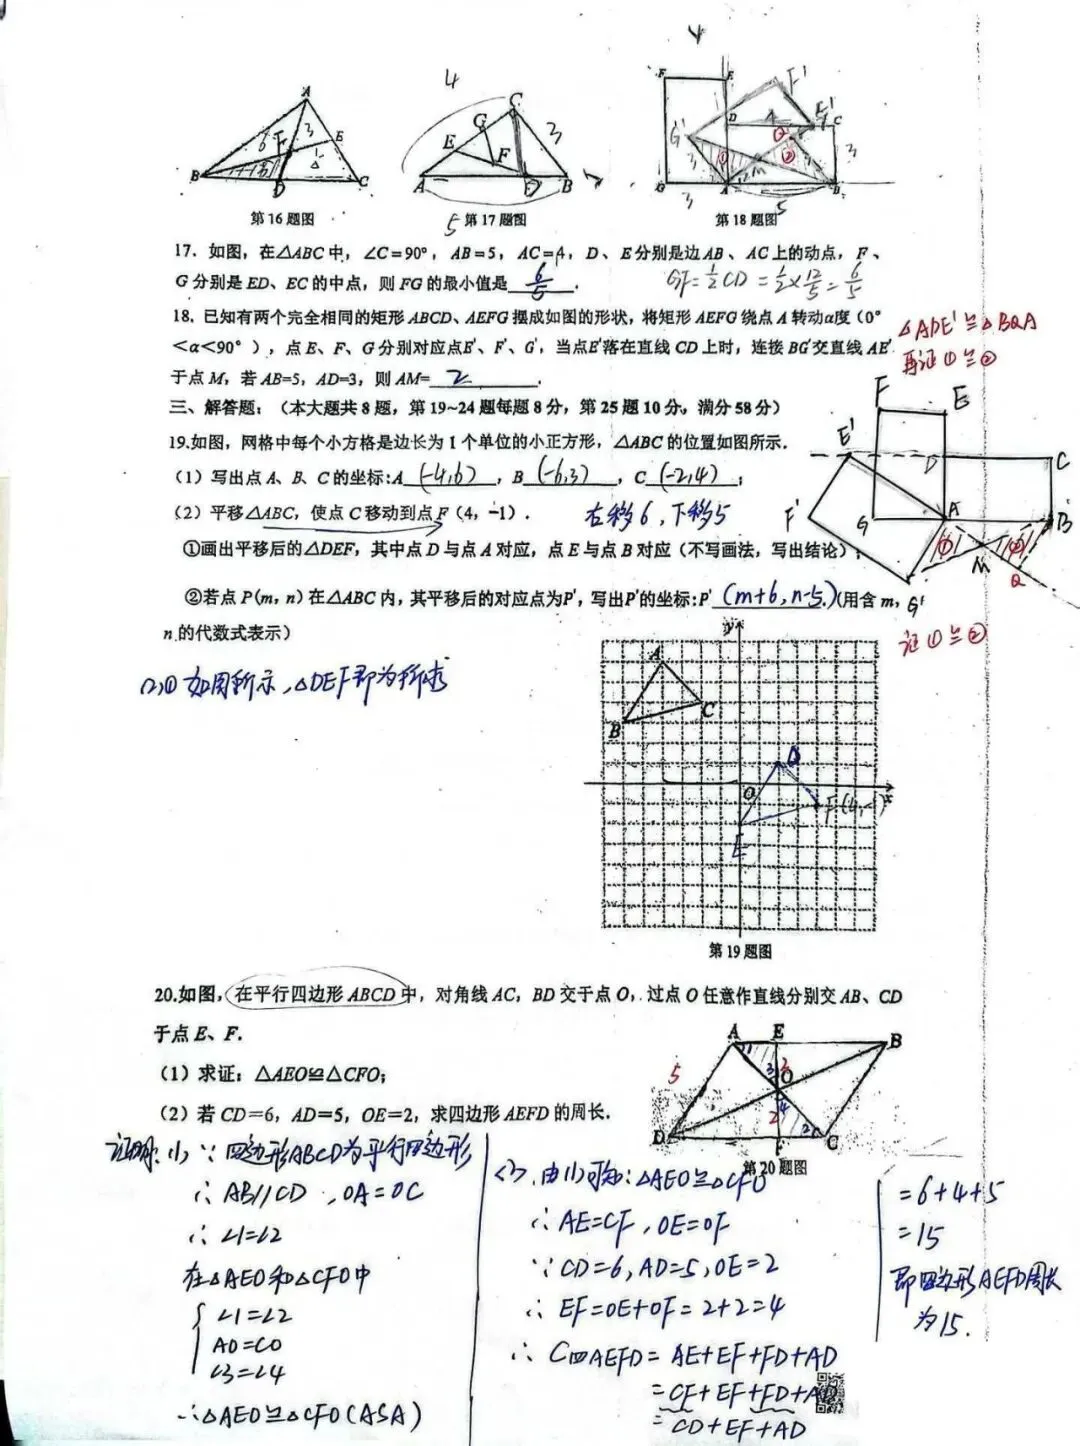 4
A
6
3
E
F
B
D
C
第16题图
4
C
G
3
E
F
A
D
B
5
第17题图
F
E
F'
D
4
E'
C
G'
①
②
3
3
3
M
G
A
B
3
5
第18题图
17. 如图，在△ABC中，∠C=90°，AB=5，AC=4，D、E分别是边AB、AC上的动点，F、
G分别是ED、EC的中点，则FG的最小值是 6/5 .
GF=1/2CD=1/2×12/5=6/5
18. 已知有两个完全相同的矩形ABCD、AEFG摆成如图的形状，将矩形AEFG绕点A转动α度（0°
＜α＜90°），点E、F、G分别对应点E'、F'、G'，当点E'落在直线CD上时，连接BG'交直线AE'
于点M，若AB=5，AD=3，则AM= 2 .
△ADE'≌△BQA
再证①≌②
三、解答题：（本大题共8题，第19~24题每题8分，第25题10分，满分58分）
F
E
E'
D
C
F'
G
A
B
①
②
M
Q
G'
证①≌②
19.如图，网格中每个小方格是边长为1个单位的小正方形，△ABC的位置如图所示.
（1）写出点A、B、C的坐标:A (-4,6) ，B (-6,3) ，C (-2,4) ；
（2）平移△ABC，使点C移动到点F（4，-1）.
右移6，下移5
①画出平移后的△DEF，其中点D与点A对应，点E与点B对应（不写画法，写出结论）；
②若点P(m，n)在△ABC内，其平移后的对应点为P'，写出P'的坐标:P' (m+6,n-5) (用含m，
n的代数式表示）
(2)① 如图所示，△DEF即为所求
y
A
B
C
D
O
x
F(4,-1)
E
第19题图
20.如图，在平行四边形ABCD中，对角线AC，BD交于点O，过点O任意作直线分别交AB、CD
于点E、F.
（1）求证：△AEO≌△CFO；
（2）若CD=6，AD=5，OE=2，求四边形AEFD的周长.
A
E
B
1
3
2
O
5
4
2
2
D
F
C
第20题图
证明：(1)∵四边形ABCD为平行四边形
∴AB//CD，OA=OC
∴∠1=∠2
在△AEO和△CFO中
∠1=∠2
AO=CO
∠3=∠4
∴△AEO≌△CFO(ASA)
(2).由(1)可知：△AEO≌△CFO
∴AE=CF，OE=OF
∵CD=6，AD=5，OE=2
∴EF=OE+OF=2+2=4
∴C四AEFD=AE+EF+FD+AD
=CF+EF+FD+AD
=CD+EF+AD
=6+4+5
=15
即四边形AEFD周长
为15.